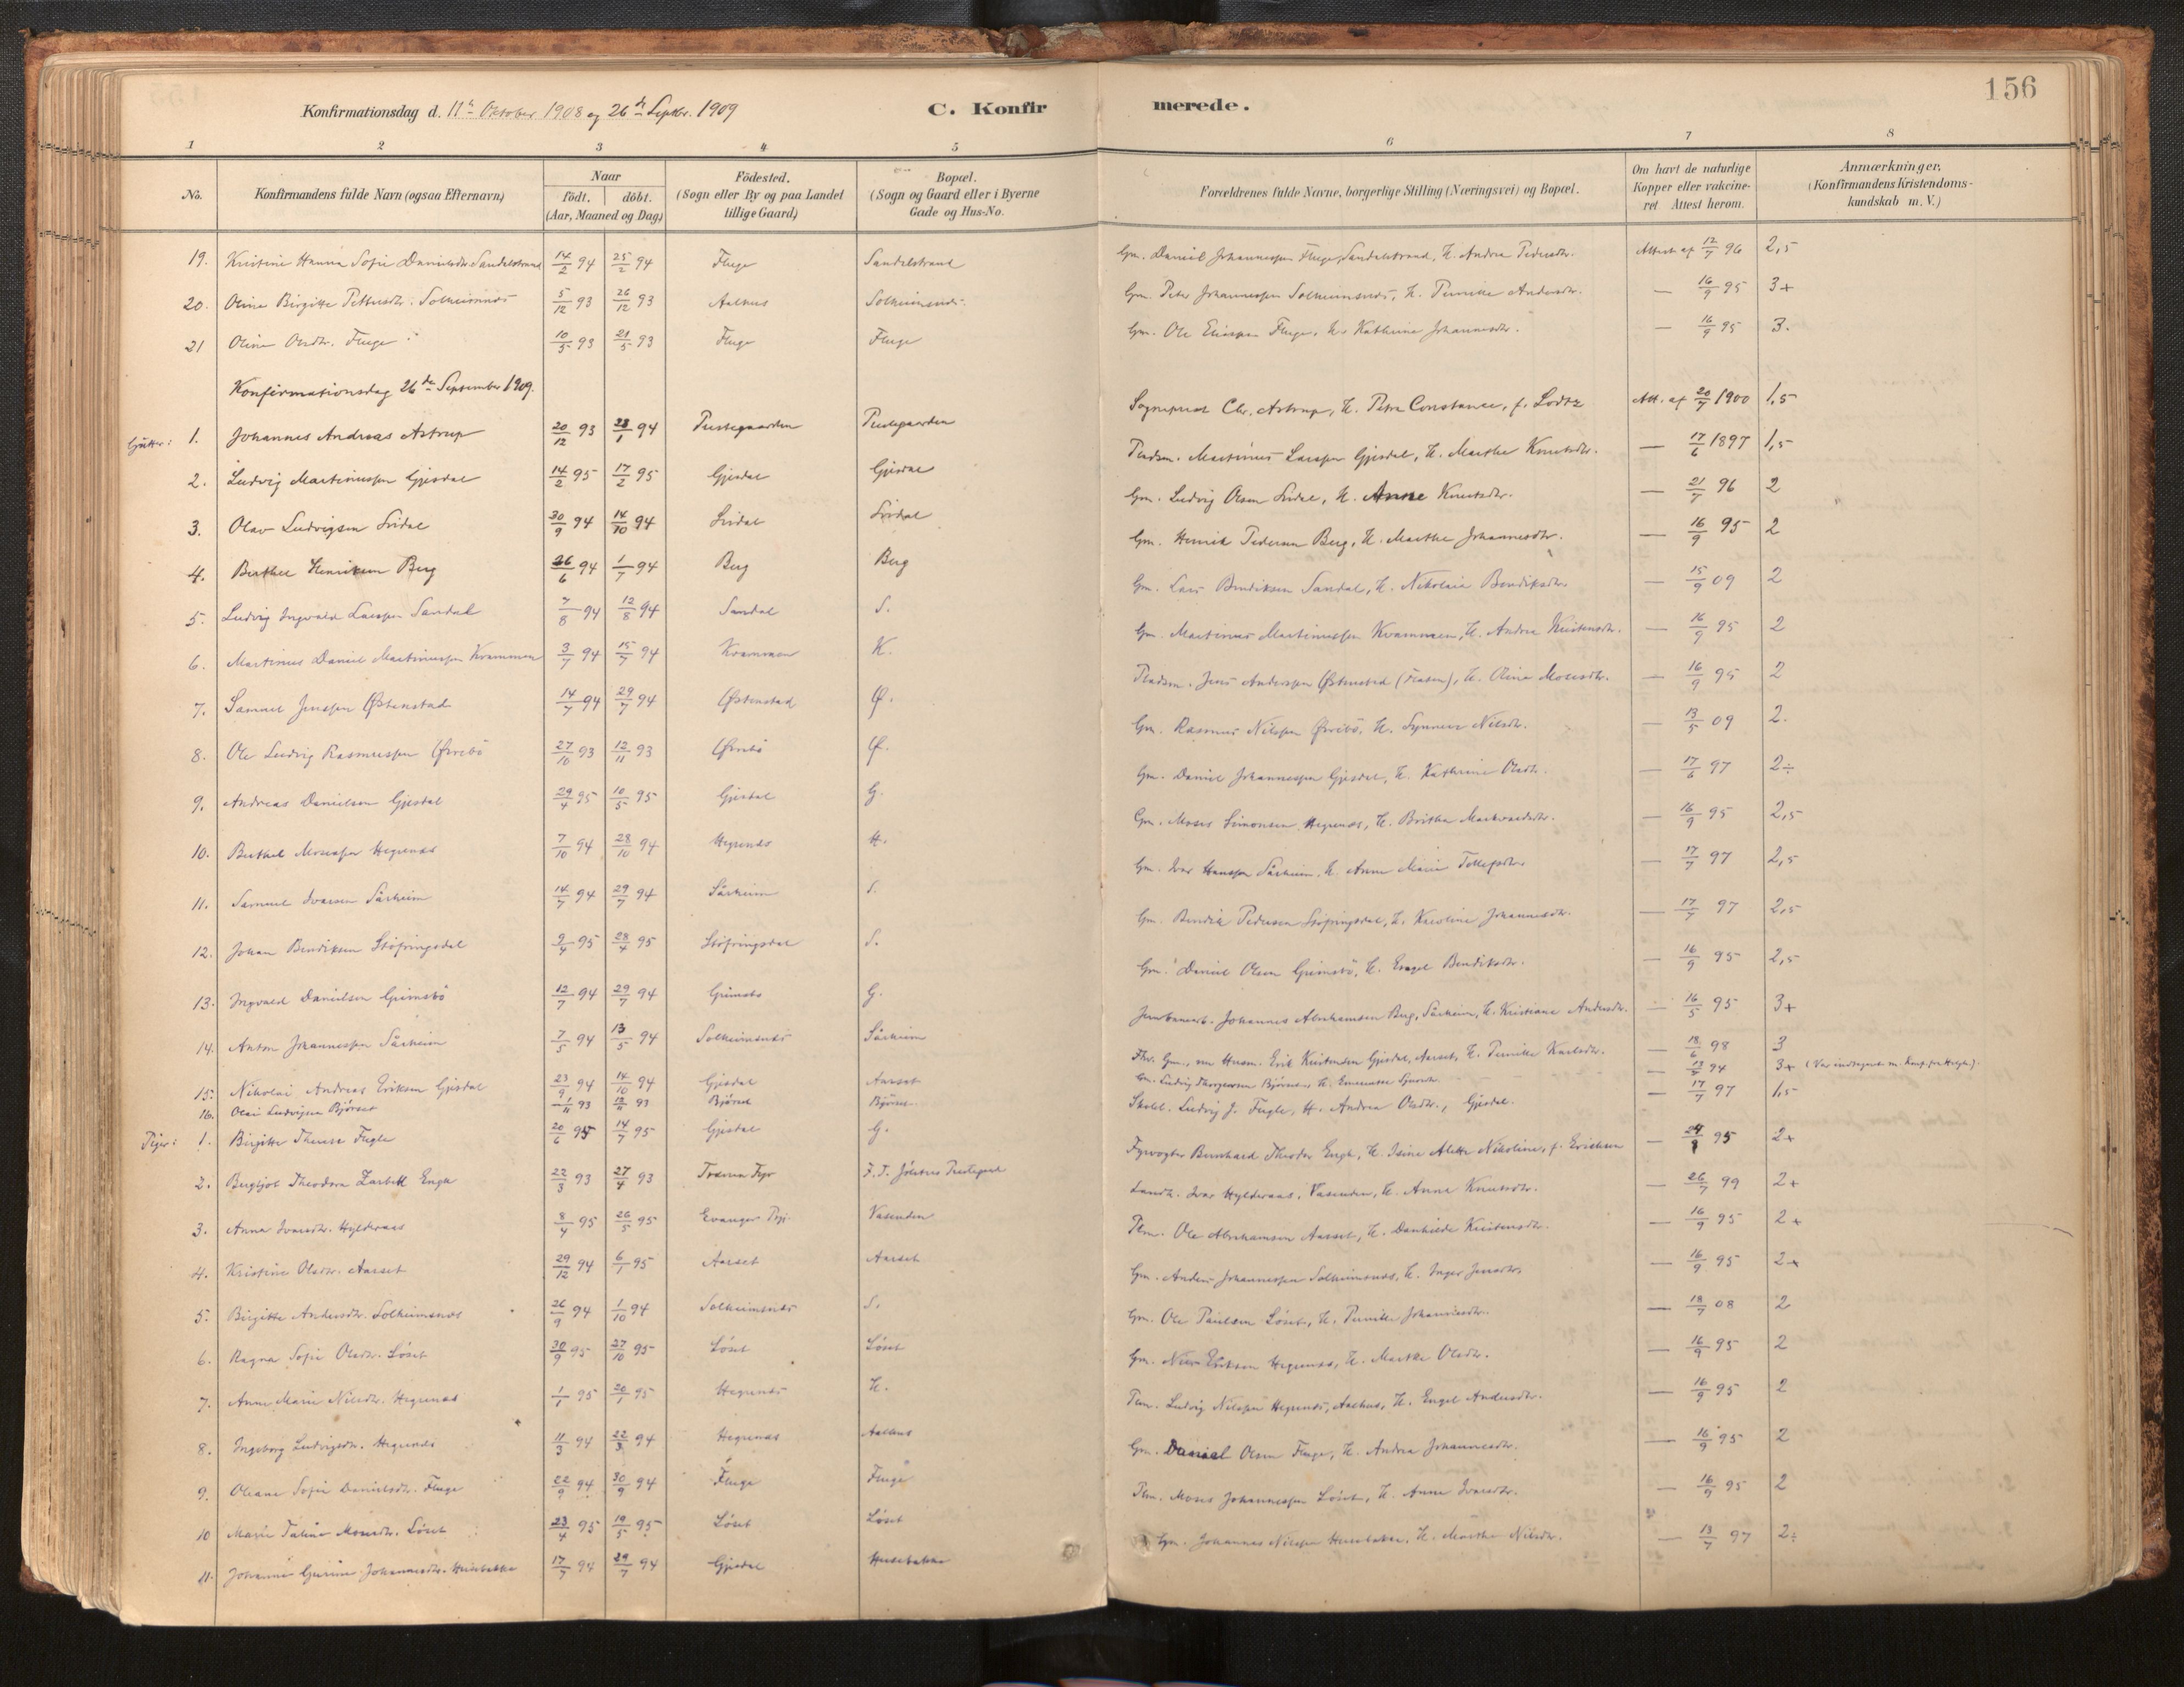 156
Konfirmationsdag d. 11te Oktober 1908 og 26de Septbr. 1909
C. Konfirmerede.
1 2 3 4 5 6 7 8
No. Konfirmandens fulde Navn (ogsaa Efternavn) Naar født, døbt. (Aar, Maaned og Dag) Födested. (Sogn eller By og paa Landet tillige Gaard) Bopæl. (Sogn og Gaard eller i Byerne Gade og Hus-No. Forældrenes fulde Navne, borgerlige Stilling (Næringsvei) og Bopæl. Om havt de naturlige Kopper eller vakcineret. Attest herom. Anmærkninger, (Konfirmandens Kristendomskundskab m. V.)
19. Kristine Hanna Sofie Danielsdtr. Sandalstrand 14/2 94 25/2 94 Fluge Sandalstrand Gm. Daniel Johannessen Fluge, Sandalstrand, H. Andrea Pedersdtr. Attest af 12/7 96 2,5
20. Oline Birgitte Pettersdtr. Solheimsnes 5/12 93 26/12 93 Aalhus Solheimsnes Gm. Peter Johannessen Solheimsnes, H. Pernille Andersdtr. — 16/9 95 3+
21 Oline Olsdtr. Fluge 10/5 93 21/5 93 Fluge Fluge Gm. Ole Fluge, H. Kathrine Johannesdtr. — 16/9 95 3.
Konfirmationsdag 26de September 1909.
Gutter: 1. Johannes Andreas Astrup 20/12 93 28/1 94 Prestegaarden Prestegaarden Sogneprest Chr. Astrup, H. Petra Constance, f. Lodtz Att. af 20/7 1900 1,5
2. Ludvig Martinussen Gjesdal 14/2 95 17/2 95 Gjesdal Gjesdal Pladsm. Martinus Larssen Gjesdal, H. Marthe Knutsdtr. — 17/6 1897 1,5
3. Olav Ludvigsen Svidal 30/9 94 14/10 94 Svidal Svidal Gm. Ludvig Olsen Svidal, H. Anne Knutsdtr. — 21/7 96 2
4. Berthel Henriksen Berg 26/6 94 1/7 94 Berg Berg Gm. Henrik Pedersen Berg, H. Marthe Johannesdtr. — 16/9 95 2
5. Ludvig Ingvald Larssen Sandal 7/8 94 12/8 94 Sandal S. Gm. Lars Bendiksen Sandal, H. Nikolaia Bendiksdtr. — 15/9 09 2
6. Martinus Daniel Martinussen Kvammen 3/7 94 15/7 94 Kvammen K. Gm. Martinus Martinussen Kvammen, H. Andrea Kristensdtr. — 16/9 95 2
7. Samuel Jenssen Østenstad 14/7 94 29/7 94 Østenstad Ø. Pladsm. Jens Anderssen Østenstad, H. Oline Mosesdtr. — 16/9 95 2
8. Ole Ludvig Rasmussen Ørrebø 27/10 93 12/11 93 Ørrebø Ø. Gm. Rasmus Nilssen Ørrebø, H. Synneve Nilsdtr. — 13/5 09 2.
9. Andreas Danielsen Gjesdal 29/4 95 10/5 95 Gjesdal G. Gm. Daniel Johannessen Gjesdal, H. Kathrine Olsdtr. — 17/6 97 2÷
10. Berthel Mosessen Hegrenes 7/10 94 28/10 94 Hegrenes H. Gm. Moses Simonsen Hegrenes, H. Britha Markvardsdtr. — 16/9 95 2,5
11. Samuel Ivarsen Sårheim 14/7 94 29/7 94 Sårheim S. Gm. Ivar Hanssen Sårheim, H. Anne Marie Tollefsdtr. — 17/7 97 2,5
12. Johan Bendiksen Støfringsdal 9/4 95 28/4 95 Støfringsdal S. Gm. Bendik Pedersen Støfringsdal, H. Karoline Johannesdtr. — 17/7 97 2,5
13. Ingvald Danielsen Grimsbø 12/7 94 29/7 94 Grimsbø G. Gm. Daniel Olsen Grimsbø, H. Engel Bendiksdtr. — 16/9 95 2,5
14. Anton Johannessen Sårheim 7/5 94 13/5 94 Solheimsnes Sårheim Jernbanearb. Johannes Abrahamsen Berg, Sårheim, H. Kristiane Andersdtr. — 16/5 95 3+
15. Nikolai Andreas Eriksen Gjesdal 23/9 94 14/10 94 Gjesdal Aarset Fhv. Gm., nu Husm. Erik Kristensen Gjesdal, Aarset, H. Pernille Karlsdtr. — 18/6 98 3
16. Olai Ludvigsen Bjørset 1/11 93 12/11 93 Bjørset Bjørset Gm. Ludvig Bjørset, H. — 94 3+
Piger: 1. Birgitte Therese Fugle 20/6 95 14/7 95 Gjesdal G. Skolel. Ludvig J. Fugle, H. Andrea Olsdtr., Gjesdal. — 17/7 97 1,5
2. Bergljot Theodora Engh 22/3 93 27/4 93 Fyr P. T. Jölsters Prestegaard Fyrvogter Bernhard Theodor Engh, H. Isine Aletta Nikoline, f. Erichsen — 24/8 95 2+
3. Anna Ivarsdtr. Hyldernaes 8/4 95 26/5 95 Evanger Prgj. Vasenden Landh. Ivar Hyldernaas, Vasenden, H. Anne Knutsdtr. — 26/7 99 2+
4. Kristine Olsdtr. Aarset 29/12 94 6/1 95 Aarset Aarset Plm. Ole Abrahamsen Aarset, H. Danhilde Kristensdtr. — 16/9 95 2+
5. Birgitte Andersdtr. Solheimsnes 26/9 94 1/10 94 Solheimsnes S. Gm. Anders Johannessen Solheimsnes, H. Inger Jensdtr. — 16/9 95 2+
6. Ragna Sofie Olsdtr. Løset 30/9 95 27/10 95 Løset Løset Gm. Ole Paulsen Løset, H. Pernille Johannesdtr. — 18/7 08 2
7. Anne Marie Nilsdtr. Hegrenes 1/1 95 20/1 95 Hegrenes H. Gm. Nils Eriksen Hegrenes, H. Marthe Olsdtr. — 16/9 95 2
8. Ingeborg Ludvigsdtr. Hegrenes 11/3 94 22/3 94 Hegrenes Aalhus Plm. Ludvig Nilssen Hegrenes, Aalhus, H. Engel Andersdtr. — 16/9 95 2
9. Oleane Sofie Danielsdtr. Fluge 22/9 94 30/9 94 Fluge Fluge Gm. Daniel Olsen Fluge, H. Andrea Johannesdtr. — 16/9 95 2
10 Marie Taline Mosesdtr. Løset 23/4 95 19/5 95 Løset Løset Plm. Moses Johannessen Løset, H. Anna Ivarsdtr. — 16/9 95 2
11. Johanne Gurine Johannesdtr. Husebakke 17/7 94 29/7 94 Gjesdal Husebakke Gm. Johannes Nilssen Husebakke, H. Marthe Nilsdtr. — 13/7 97 2÷